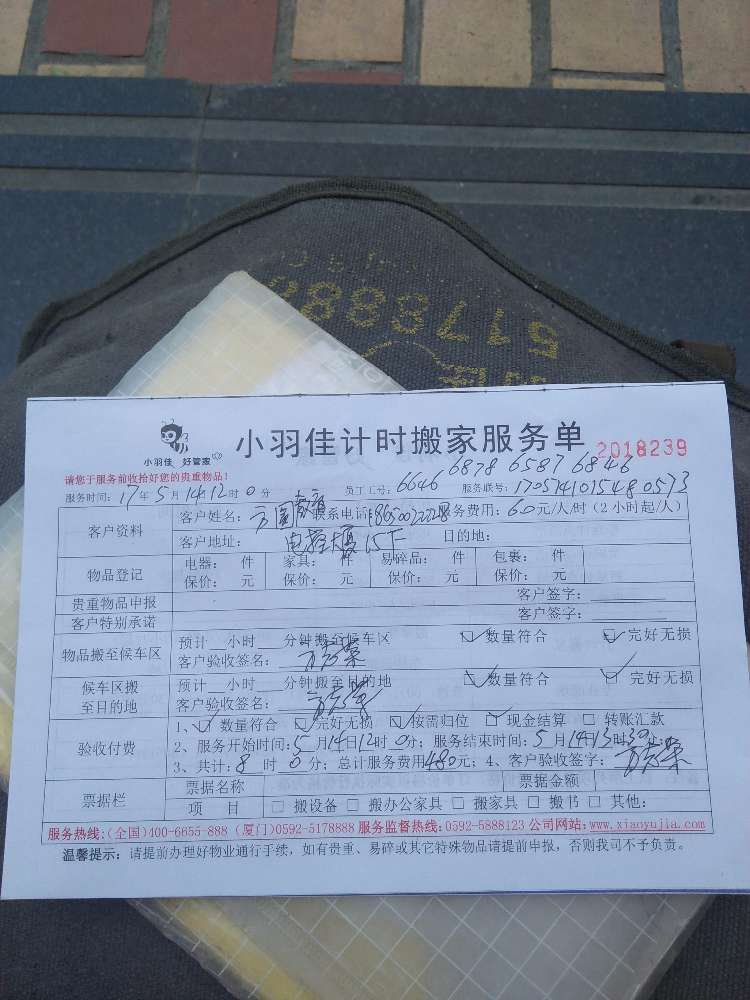 5178888
小羽佳 好管家
小羽佳计时搬家服务单
2018239
请您于服务前收拾好您的贵重物品!
6878 6587 6846
服务时间:17年5月14日12时0分 员工工号:6646 服务联号:170514101548 0573
客户资料
客户姓名: 联系电话: 服务费用:60元/人/时(2小时起/人)
客户地址: 目的地:
物品登记
电器: 件 家具: 件 易碎品: 件 包裹: 件
保价: 元 保价: 元 保价: 元 保价: 元
贵重物品申报 客户签字:
客户特别承诺 客户签字:
物品搬至候车区
预计 小时 分钟搬至候车区 数量符合 完好无损
客户验收签名:
候车区搬至目的地
预计 小时 分钟搬至目的地 数量符合 完好无损
客户验收签名:
验收付费
1、数量符合 完好无损 按需归位 现金结算 转账汇款
2、服务开始时间:5月14日12时0分; 服务结束时间:5月14日13时30分;
3、共计:8时0分; 总计服务费用480元; 4、客户验收签字:
票据栏
票据名称 票据金额
项 目 搬设备 搬办公家具 搬家具 搬书 其他:
服务热线:(全国)400-6655-888 (厦门)0592-5178888 服务监督热线:0592-5888123 公司网站:www.xiaoyujia.com
温馨提示:请提前办理好物业通行手续,如有贵重、易碎或其它特殊物品请提前申报,否则我司不予负责。